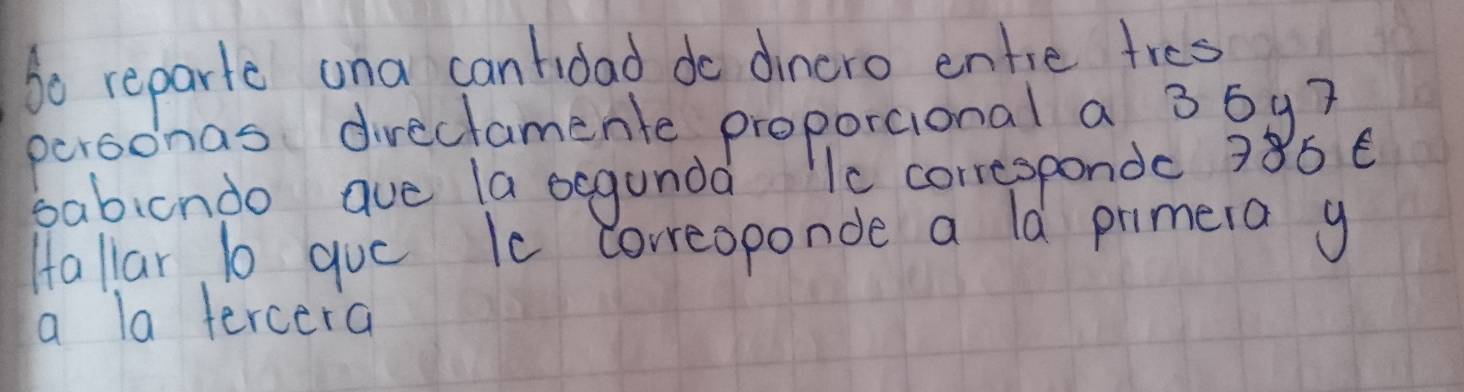 Se reparte una cantidad de dinero entre tres
personas directamente proporcional a 3 5 y 7
sabiendo que la segunda le corresponde 785 €
Hallar lo que le corresponde a la primera y
a la tercera